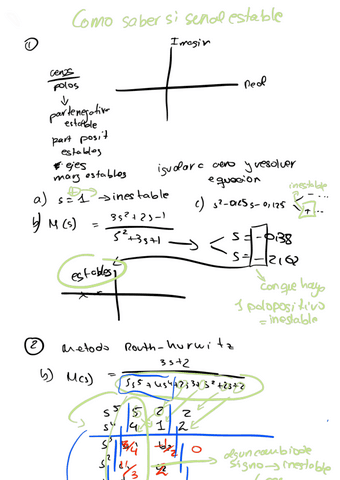 Como saber si señal estable
①
Imagin
Real
ceros
polos
parte negativa
estable
part posit
estables
ejes
marg estables
igualar a cero y resolver
ecuación
a) s = 1 → inestable
inestable
b) M(s) = 3s²+2s-1 / s²+3s+1
s = -0,38
s = -2,62
c) s²-0,25s-0,125
+
estables
con que haya
1 polo positivo
= inestable
② Metodo Routh-Hurwitz
b) M(s) = 3s+2 / 5s⁵+4s⁴+2s³+s²+2s+2
s⁵ 5 2 2
s⁴ 4 1 2
s³ 0
s²
algun cambio de
signo → inestable